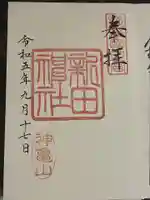 奉拝
新田
神社
神亀山
令和五年九月十七日